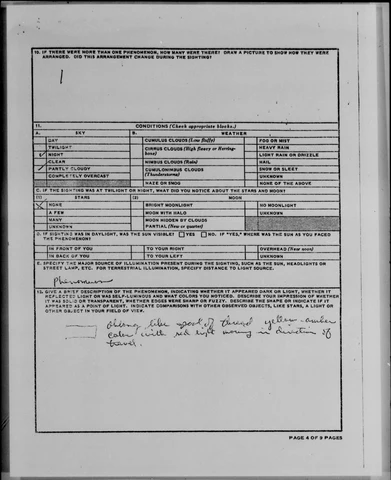 10. IF THERE WERE MORE THAN ONE PHENOMENON, HOW MANY WERE THERE? DRAW A PICTURE TO SHOW HOW THEY WERE
ARRANGED. DID THIS ARRANGEMENT CHANGE DURING THE SIGHTING?
1
11. CONDITIONS (Check appropriate blocks.)
A. SKY B. WEATHER
DAY CUMULUS CLOUDS (Low fluffy) FOG OR MIST
TWILIGHT CIRRUS CLOUDS (High fleecy or Herring-bone) HEAVY RAIN
NIGHT LIGHT RAIN OR DRIZZLE
CLEAR NIMBUS CLOUDS (Rain) HAIL
PARTLY CLOUDY CUMULONIMBUS CLOUDS (Thunderstorms) SNOW OR SLEET
COMPLETELY OVERCAST UNKNOWN
HAZE OR SMOG NONE OF THE ABOVE
C. IF THE SIGHTING WAS AT TWILIGHT OR NIGHT, WHAT DID YOU NOTICE ABOUT THE STARS AND MOON?
(1) STARS (2) MOON
NONE BRIGHT MOONLIGHT NO MOONLIGHT
A FEW MOON WITH HALO UNKNOWN
MANY MOON HIDDEN BY CLOUDS
UNKNOWN PARTIAL (New or quarter)
D. IF SIGHTING WAS IN DAYLIGHT, WAS THE SUN VISIBLE? YES NO. IF "YES," WHERE WAS THE SUN AS YOU FACED
THE PHENOMENON?
IN FRONT OF YOU TO YOUR RIGHT OVERHEAD (Near noon)
IN BACK OF YOU TO YOUR LEFT UNKNOWN
E. SPECIFY THE MAJOR SOURCE OF ILLUMINATION PRESENT DURING THE SIGHTING, SUCH AS SUN, HEADLIGHTS OR
STREET LAMP, ETC. FOR TERRESTRIAL ILLUMINATION, SPECIFY DISTANCE TO LIGHT SOURCE.
Phenomenon
12. GIVE A BRIEF DESCRIPTION OF THE PHENOMENON, INDICATING WHETHER IT APPEARED DARK OR LIGHT, WHETHER IT
REFLECTED LIGHT OR WAS SELF-LUMINOUS AND WHAT COLORS YOU NOTICED. DESCRIBE YOUR IMPRESSION OF WHETHER
IT WAS SOLID OR TRANSPARENT, WHETHER EDGES WERE SHARP OR FUZZY. DESCRIBE THE SHAPE OR INDICATE IF IT
APPEARED AS A POINT OF LIGHT. INDICATE COMPARISONS WITH OTHER OBSERVED OBJECTS, LIKE STARS, A LIGHT OR
OTHER OBJECT IN YOUR FIELD OF VIEW.
like spool of thread yellow-amber
color with red light moving in direction of
travel.
PAGE 4 OF 9 PAGES